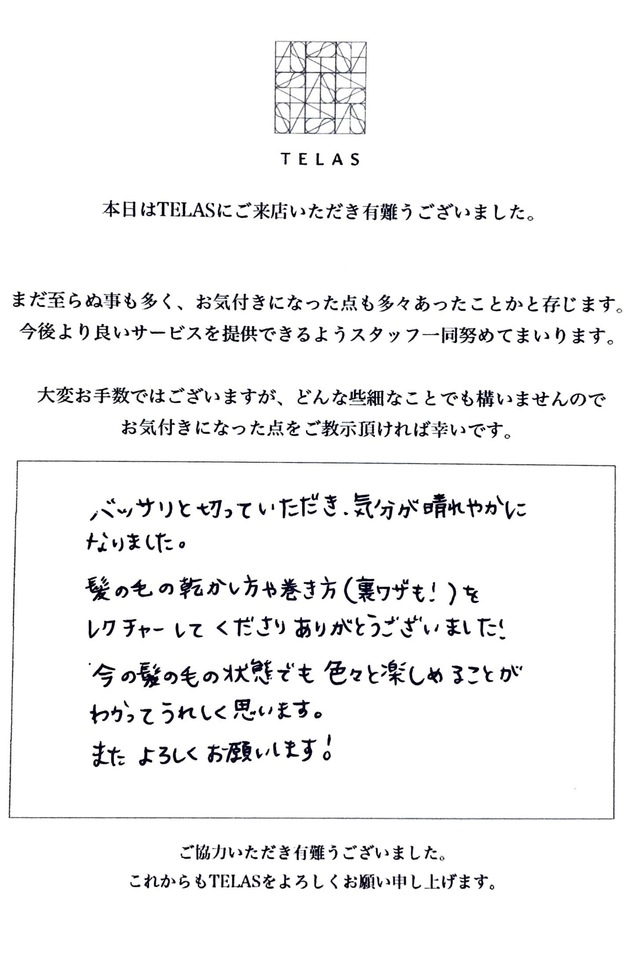 TELAS
本日はTELASにご来店いただき有難うございました。
まだ至らぬ事も多く、お気付きになった点も多々あったことかと存じます。
今後より良いサービスを提供できるようスタッフ一同努めてまいります。
大変お手数ではございますが、どんな些細なことでも構いませんので
お気付きになった点をご教示頂ければ幸いです。
バッサリと切っていただき、気分が晴れやかに
なりました。
髪の毛の乾かし方や巻き方(裏ワザも!)を
レクチャーしてくださりありがとうございました!
今の髪の毛の状態でも色々と楽しめることが
わかってうれしく思います。
またよろしくお願いします!
ご協力いただき有難うございました。
これからもTELASをよろしくお願い申し上げます。